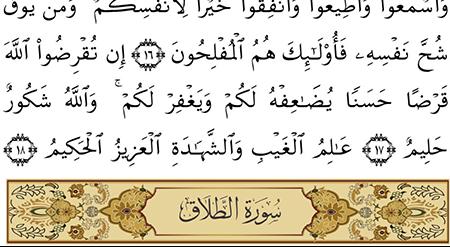 وَٱسۡمَعُواْ وَأَطِيعُواْ وَأَنفِقُواْ خَيۡرٗا لِّأَنفُسِكُمۡۗ وَمَن يُوقَ
شُحَّ نَفۡسِهِۦ فَأُوْلَٰٓئِكَ هُمُ ٱلۡمُفۡلِحُونَ ١٦ إِن تُقۡرِضُواْ ٱللَّهَ
قَرۡضًا حَسَنٗا يُضَٰعِفۡهُ لَكُمۡ وَيَغۡفِرۡ لَكُمۡۚ وَٱللَّهُ شَكُورٌ
حَلِيمٌ ١٧ عَٰلِمُ ٱلۡغَيۡبِ وَٱلشَّهَٰدَةِ ٱلۡعَزِيزُ ٱلۡحَكِيمُ ١٨
سُورَةُ الطَّلَاقِ